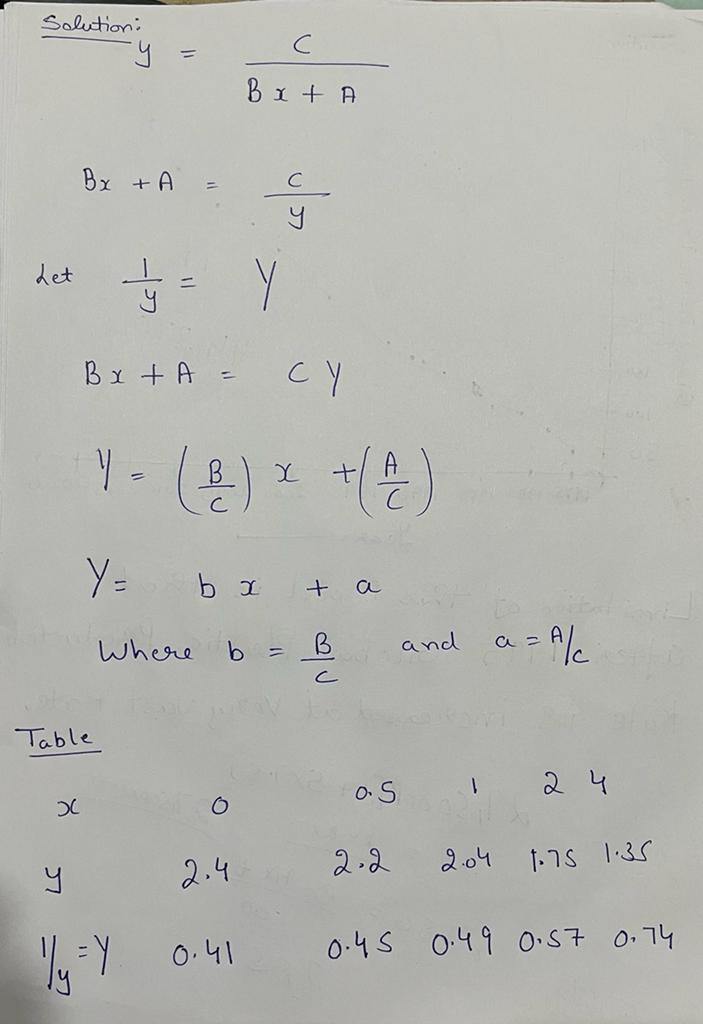 Solution:
y = C / Bx + A
Bx + A = C / y
Let 1/y = Y
Bx + A = C Y
Y = (B/C) x + (A/C)
Y = b x + a
Where b = B/C and a = A/C
Table
x 0 0.5 1 2 4
y 2.4 2.2 2.04 1.75 1.35
1/y = Y 0.41 0.45 0.49 0.57 0.74